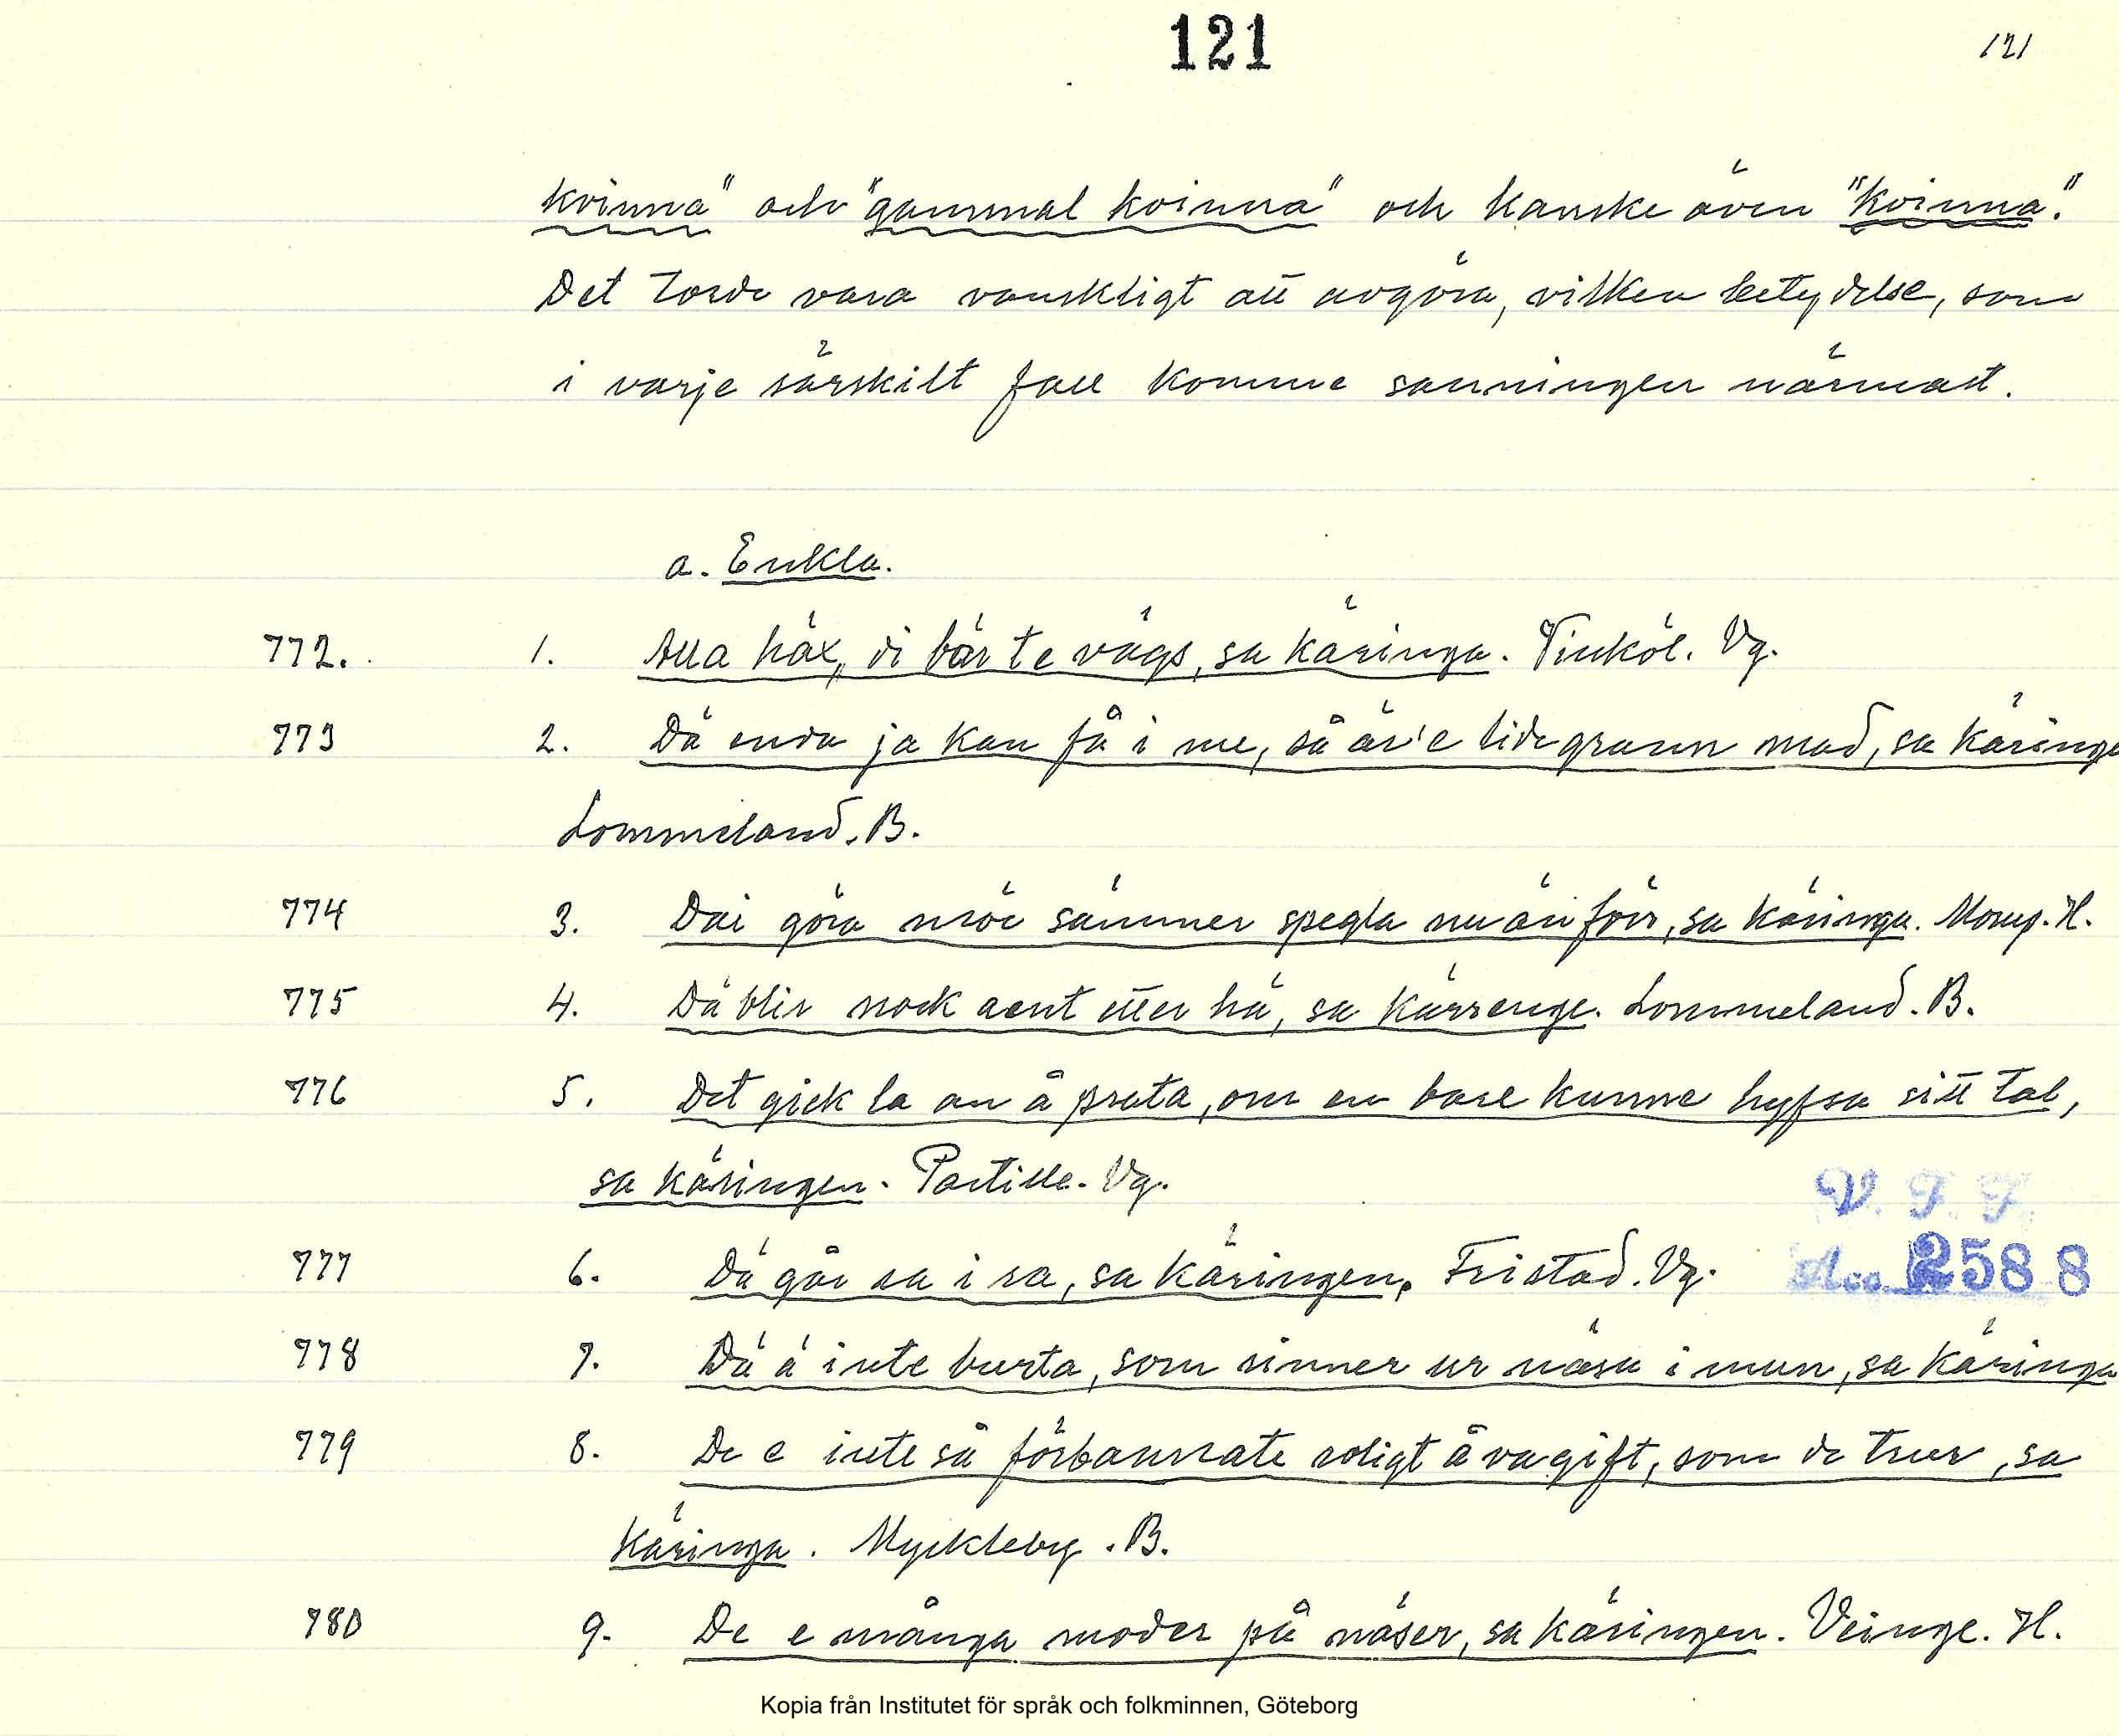 121
121
kvinna" och "gammal kvinna" och kanske även "kvinna".
Det torde vara vanskligt att avgöra, vilken betydelse, som
i varje särskilt fall komme sanningen närmast.
a. Enkla.
772. 1. Alla häx, di bär te vägs, sa käringa. Vinköl. Vg.
773 2. Dä enda ja kan få i me, så är'e lidegrann mad, sa käringa
Lommeland. B.
774 3. Däi göra möe sämmer spegla nu än förr, sa käringa. Morup. H.
775 4. Dä blir nock aent etter hä, sa kärrenge. Lommeland. B.
776 5. Det gick la an å prata, om en bare kunne hyfsa sitt tal,
sa käringen. Partille. Vg.
V. F. F.
777 6. Dä går ra i ra, sa käringen. Fristad. Vg.
Acc. 2588
778 7. Dä ä inte burta, som rinner ur näsa i mun, sa käringa
779 8. De e inte så förbannate roligt å va gift, som de truer, sa
käringa. Myckleby. B.
780 9. De e många moder på näser, sa käringen. Veinge. H.
Kopia från Institutet för språk och folkminnen, Göteborg